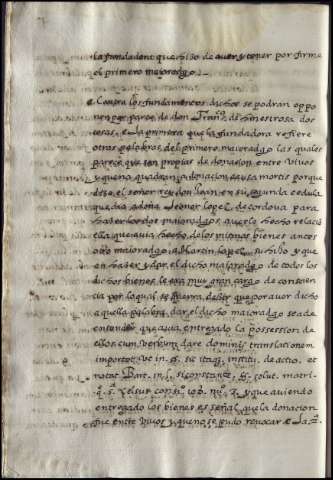 la fundadora que hizo de aver y tener por firme
el primero maioradgo.
Contra los fundamentos dichos se podran oppo
ner por parte de don Fran.co de hinestrosa dos
cosas. La primera que la fundadora refiere
otras palabras del primero maioradgo las quales
parece que son propias de donacion entre vivos
y que no quadran a donacion causa mortis porque
dize el señor rey don Joan en su segunda cedula
que dio a doña Leonor lopez de cordova para
hazer los dos maioradgos, que ella hecho relacio
ella que avia hecho de los mismos bienes antes
otro maioradgo a Martin lopez su hijo y que
en hazer y dar el dicho maioradgo de todos los
dichos bienes le era muy gran cargo de conscien
cia por lo qual se funda dezir que por aver dicho
aquella palabra dar el dicho maioradgo se a de
entender que avia entregado la possession de
ellos cum verbum dare dominii translationem
importet ut in §. sic itaq. institu. de actio. et
notat Bart. in l. si constante, ff. solut. matri.
y que aviendo
entregado los bienes es señal que la donacion
fue entre vivos y que no se pudo revocar